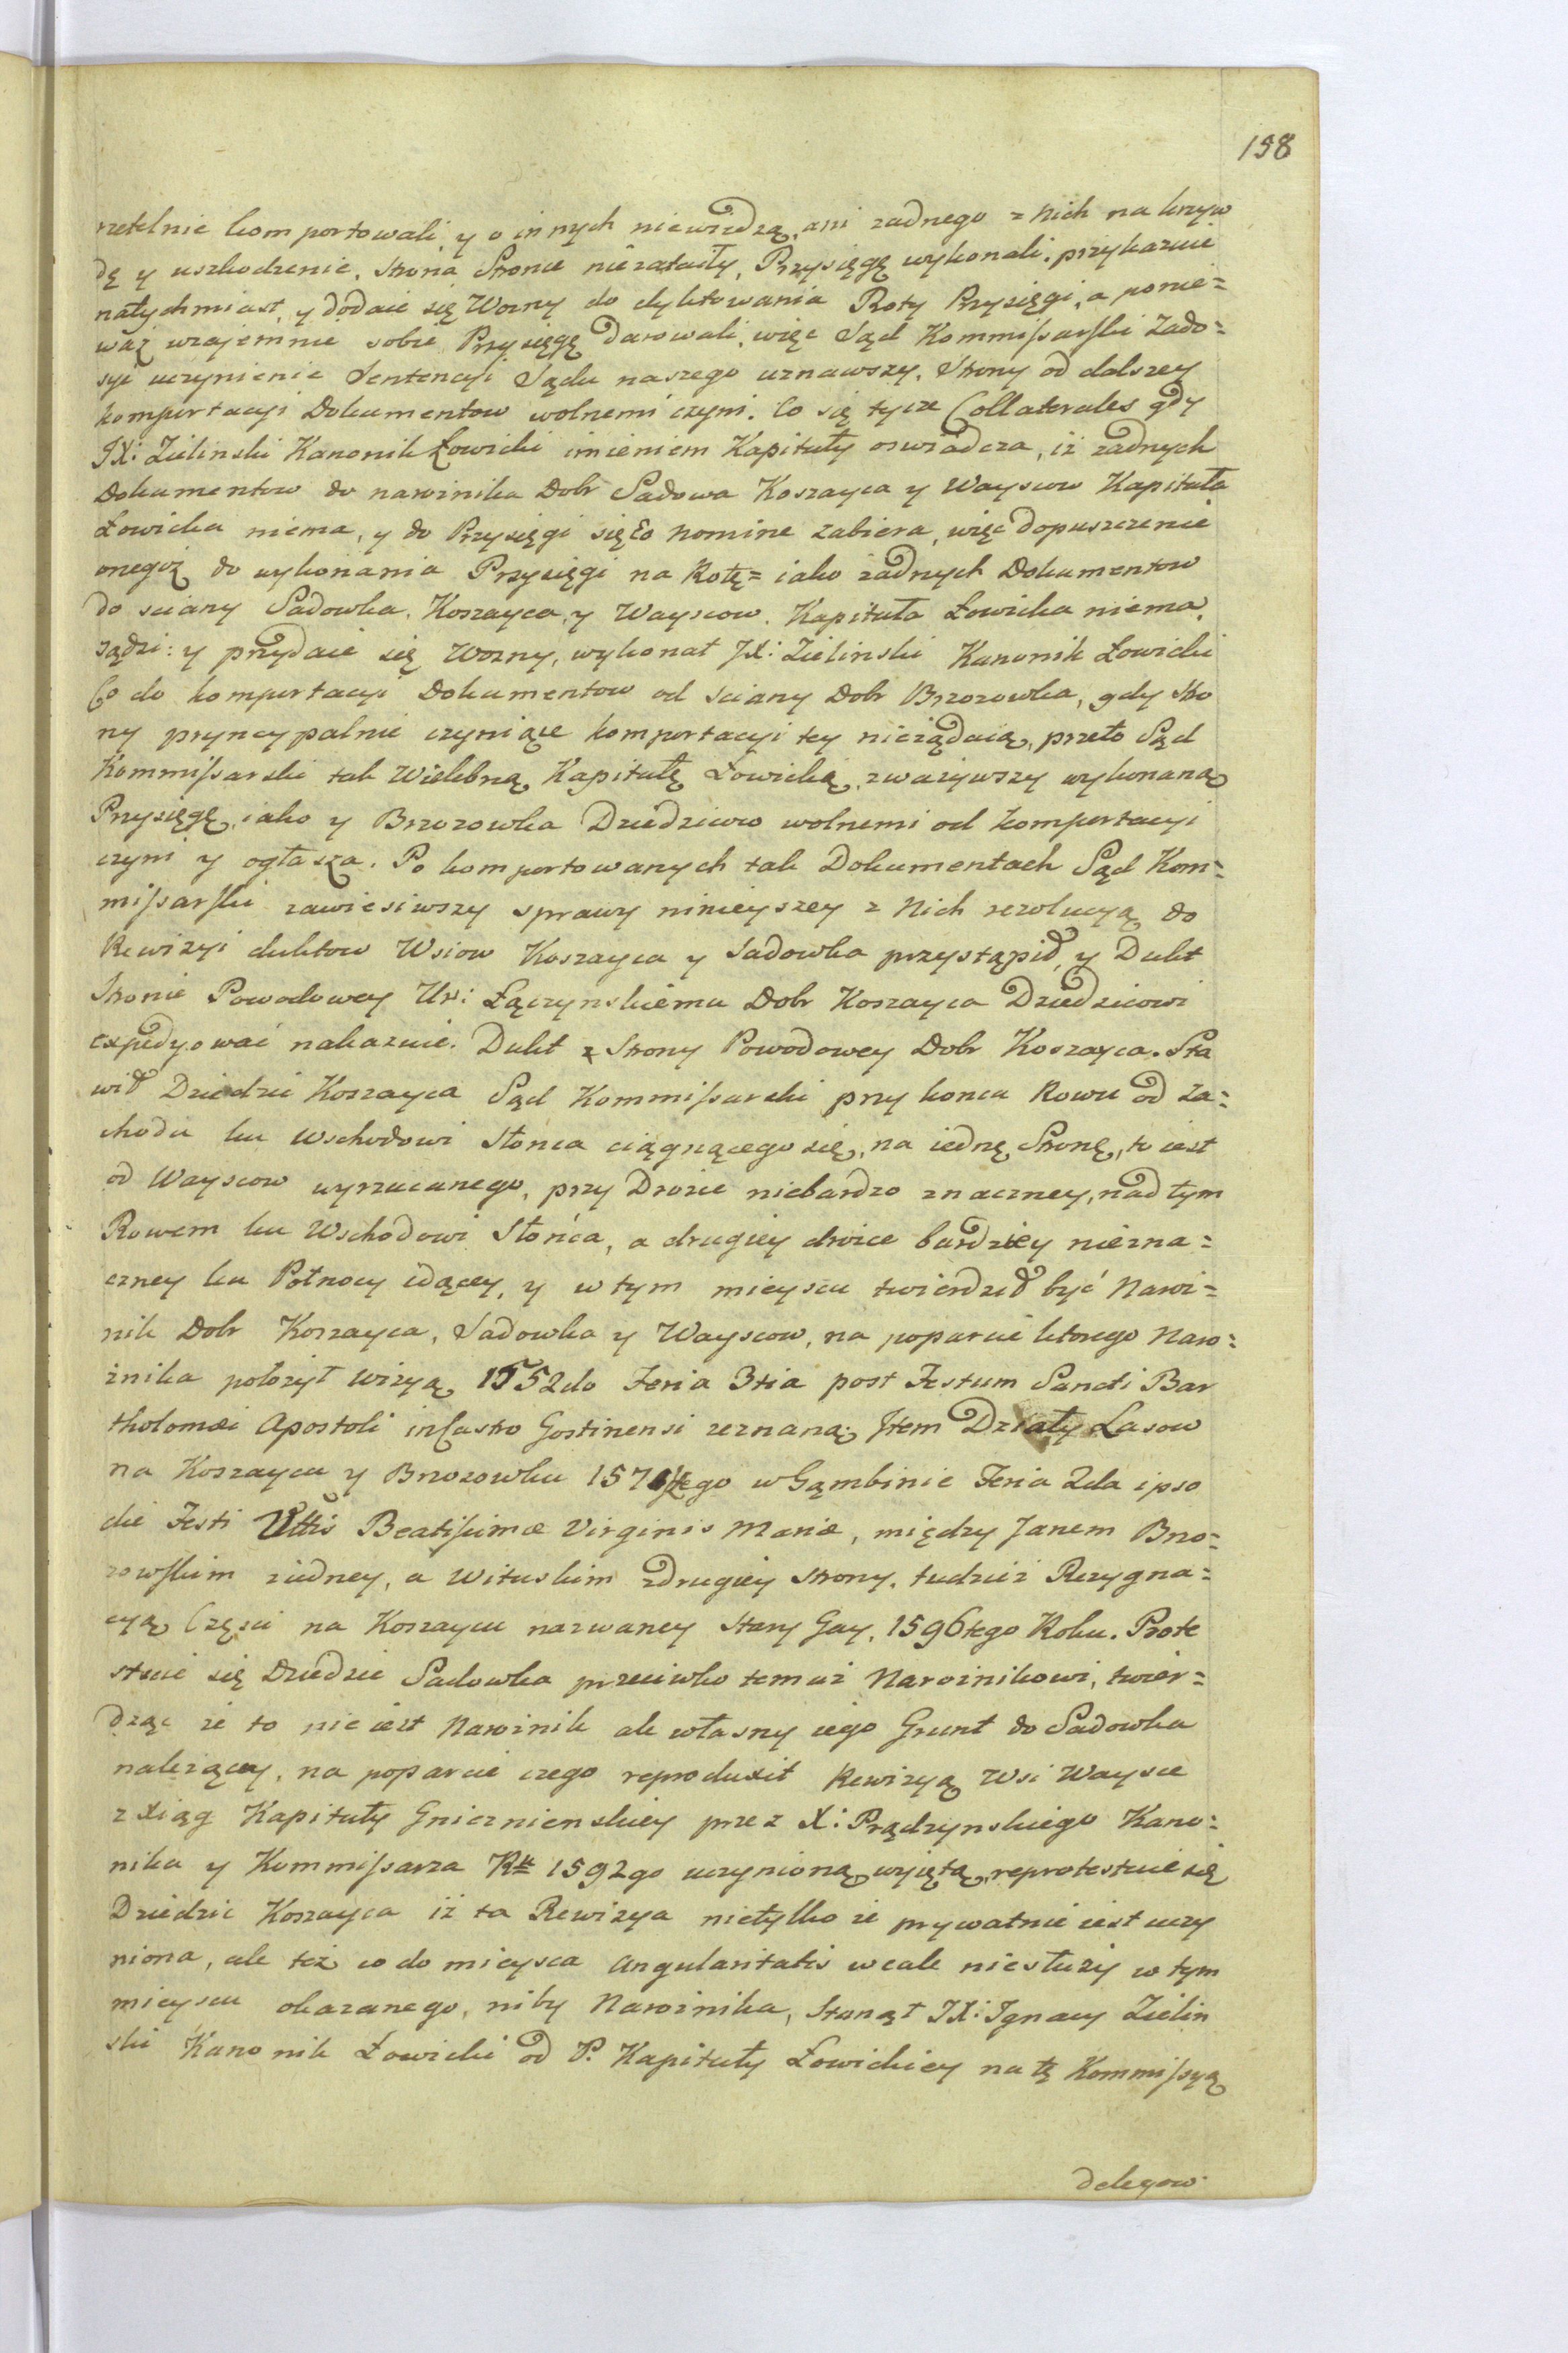 198
rzetelnie komportowali, y o innych niewiedzą, ani zadnego z nich na krzyw
dę y uszkodzenie, Strona Stronie niezataiły, Przysięgę wykonali. przykazuie
natychmiast, y dodaie się Wozny do dyktowania Roty Przysięgi, a ponie=
waż wzajemnie sobie Przysięgę darowali, więc Sąd Kommissarski Zado=
syć uczynienie Sentencyi Sądu naszego uznawszy, Strony od dalszey
komportacyi Dokumentow wolnemi czyni. Co się tycze Collaterales gdy
JX: Zielinski Kanonik Łowicki imieniem Kapituły oswiadcza, iż zadnych
Dokumentow do naroznika Dobr Sadowa Koszayca y Wayscow Kapituła
Łowicka niema, y do Przysięgi się Eo nomine zabiera, więc dopuszczenie
onegoż do wykonania Przysięgi na Rotę= iako żadnych Dokumentow
do sciany Sadowka, Koszayca, y Wayscow. Kapituła Łowicka niema,
sądzi: y przydaie się Wozny, wykonał JX: Zielinski Kanonik Łowicki
Co do komportacyi Dokumentow od sciany Dobr Brzozowka, gdy Stro
ny pryncypalnie czyniące komportacyi tey nieżądaią, przeto Sąd
Kommissarski tak Wielebną Kapitułę Łowicką, zwazywszy wykonaną
Przysięgę, iako y Brzozowka Dziedzicow wolnemi od komportacyi
czyni y ogłasza. Po komportowanych tak Dokumentach Sąd Kom=
missarski zawiesiwszy sprawy ninieyszey z Nich rezolucyą do
Rewizyi duktow Wsiow Koszayca y Sadowka przystąpił, y Dukt
Stronie Powodowey Ur: Łączynskiemu Dobr Koszayca Dziedzicowi
expedyować nakazuie. Dukt z Strony Powodowey Dobr Koszayca. Sta
wił Dziedzic Koszayca Sąd Kommissarski przy koncu Rowu od za=
chodu ku Wschodowi Słonca ciągnącego się, na iednę Stronę, to iest
od Wayscow wyrzucanego, przy Drozce niebardzo znaczney, nad tym
Rowem ku Wschodowi Słońca, a drugiey drozce bardziey niezna=
czney ku Połnocy idącey, y w tym mieyscu twierdził być Naroż=
nik Dobr Koszayca, Sadowka y Wayscow, na poparcie ktorego Naro=
żnika położył wizyą 1552do Feria 3tia post Festum Sancti Bar
tholomæi Apostoli in Castro Gostinensi zeznaną; Item Działy Lasow
na Koszaycu y Brzozowku 157 tego w Gąmbinie Feria 2da ipso
die Festi Beatissimæ Virginis Mariæ, między Janem Brzo=
zowskim ziedney, a Wituskim zdrugiey strony, tudziez Rezygna=
cyą Części na Koszaycu nazwaney Stary Gay, 1596tego Roku. Prote
stuie się Dziedzic Sadowka przeciwko temuż Narożnikowi, twier=
dząc że to nie iest Naroznik ale własny iego Grunt do Sadowka
należący, na poparcie czego reproduxit Rewizyą Wsi Waysce
z Xiąg Kapituły Gnieznienskiey przez X: Prądzynskiego Kano=
nika y Kommissarza Rku 1592go uczynioną wyiętą, reprotestuie się
Dziedzic Koszayca iż ta Rewizya nietylko że prywatnie iest uczy
niona, ale też co do mieysca angularitatis wcale niesłuży w tym
mieyscu okazanego, niby Narożnika, Stanął JX: Ignacy Zielin
ski Kanonik Łowicki od P. Kapituły Łowickiey na tę Kommissyą
delegow